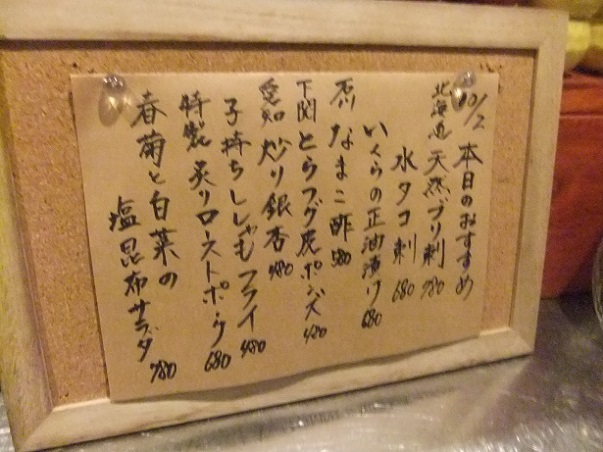 10/2 本日のおすすめ
北海道 天然ブリ刺 780
水タコ刺 680
いくらの正油漬け 680
石川 なまこ酢 580
下関 とらフグ皮ポンズ 480
愛知 炒り銀杏 480
子持ちししゃもフライ 480
特製 炙りローストポーク 680
春菊と白菜の
塩昆布サラダ 780